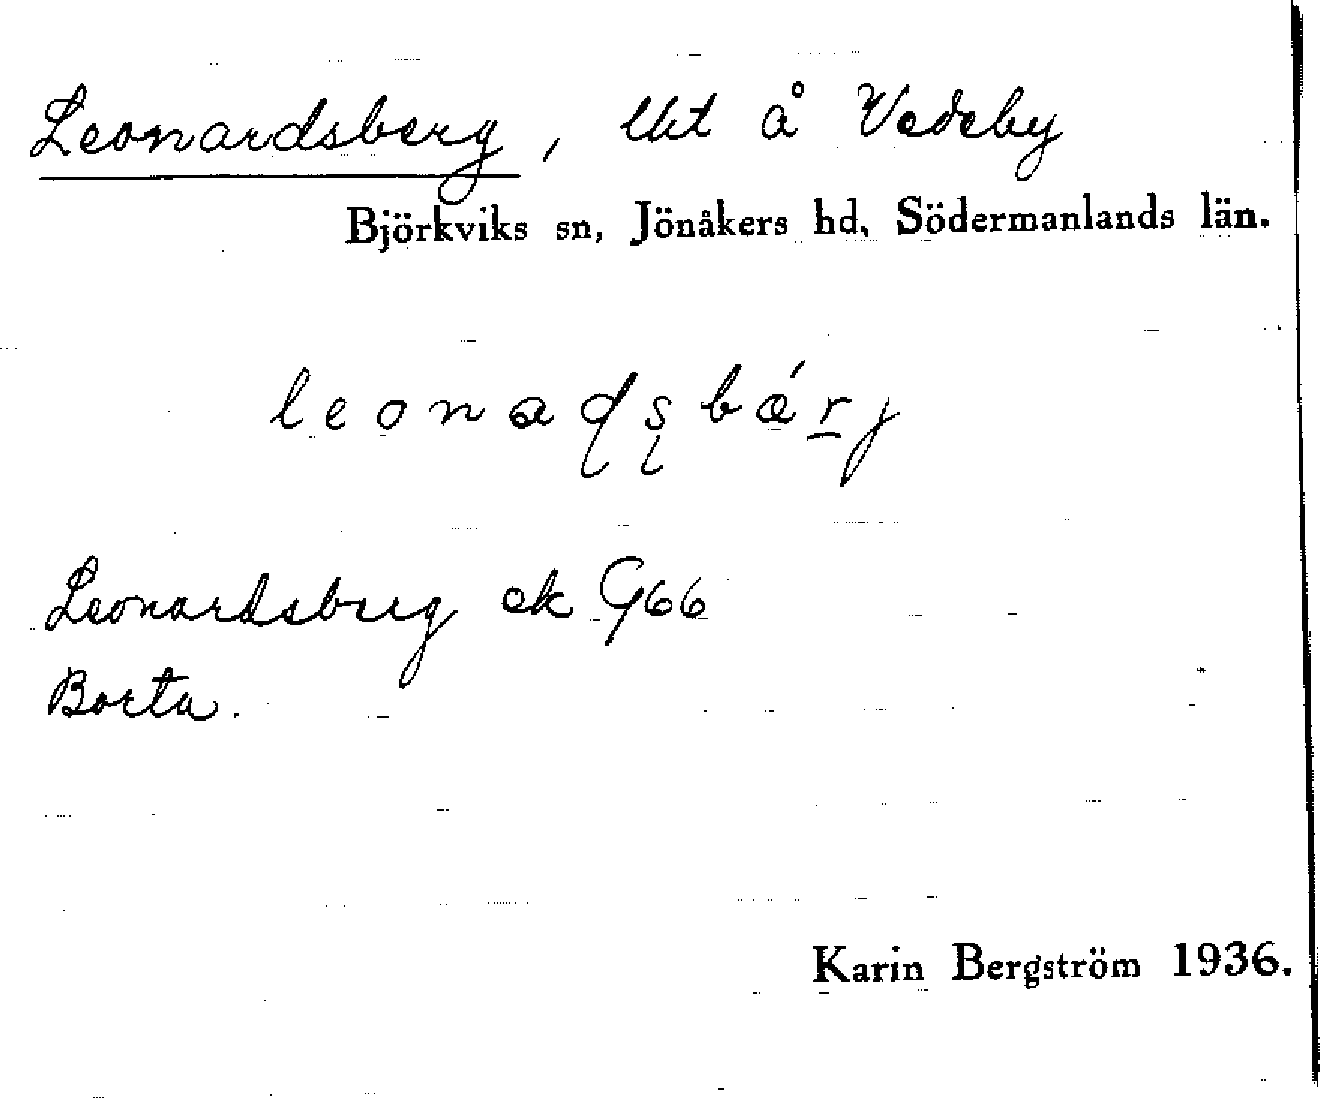 Leonardsberg, lht å Vedeby
Björkviks sn, Jönåkers hd, Södermanlands län.
leonaɖʂbǽrj
Leonardsberg ek G66
Borta.
Karin Bergström 1936.